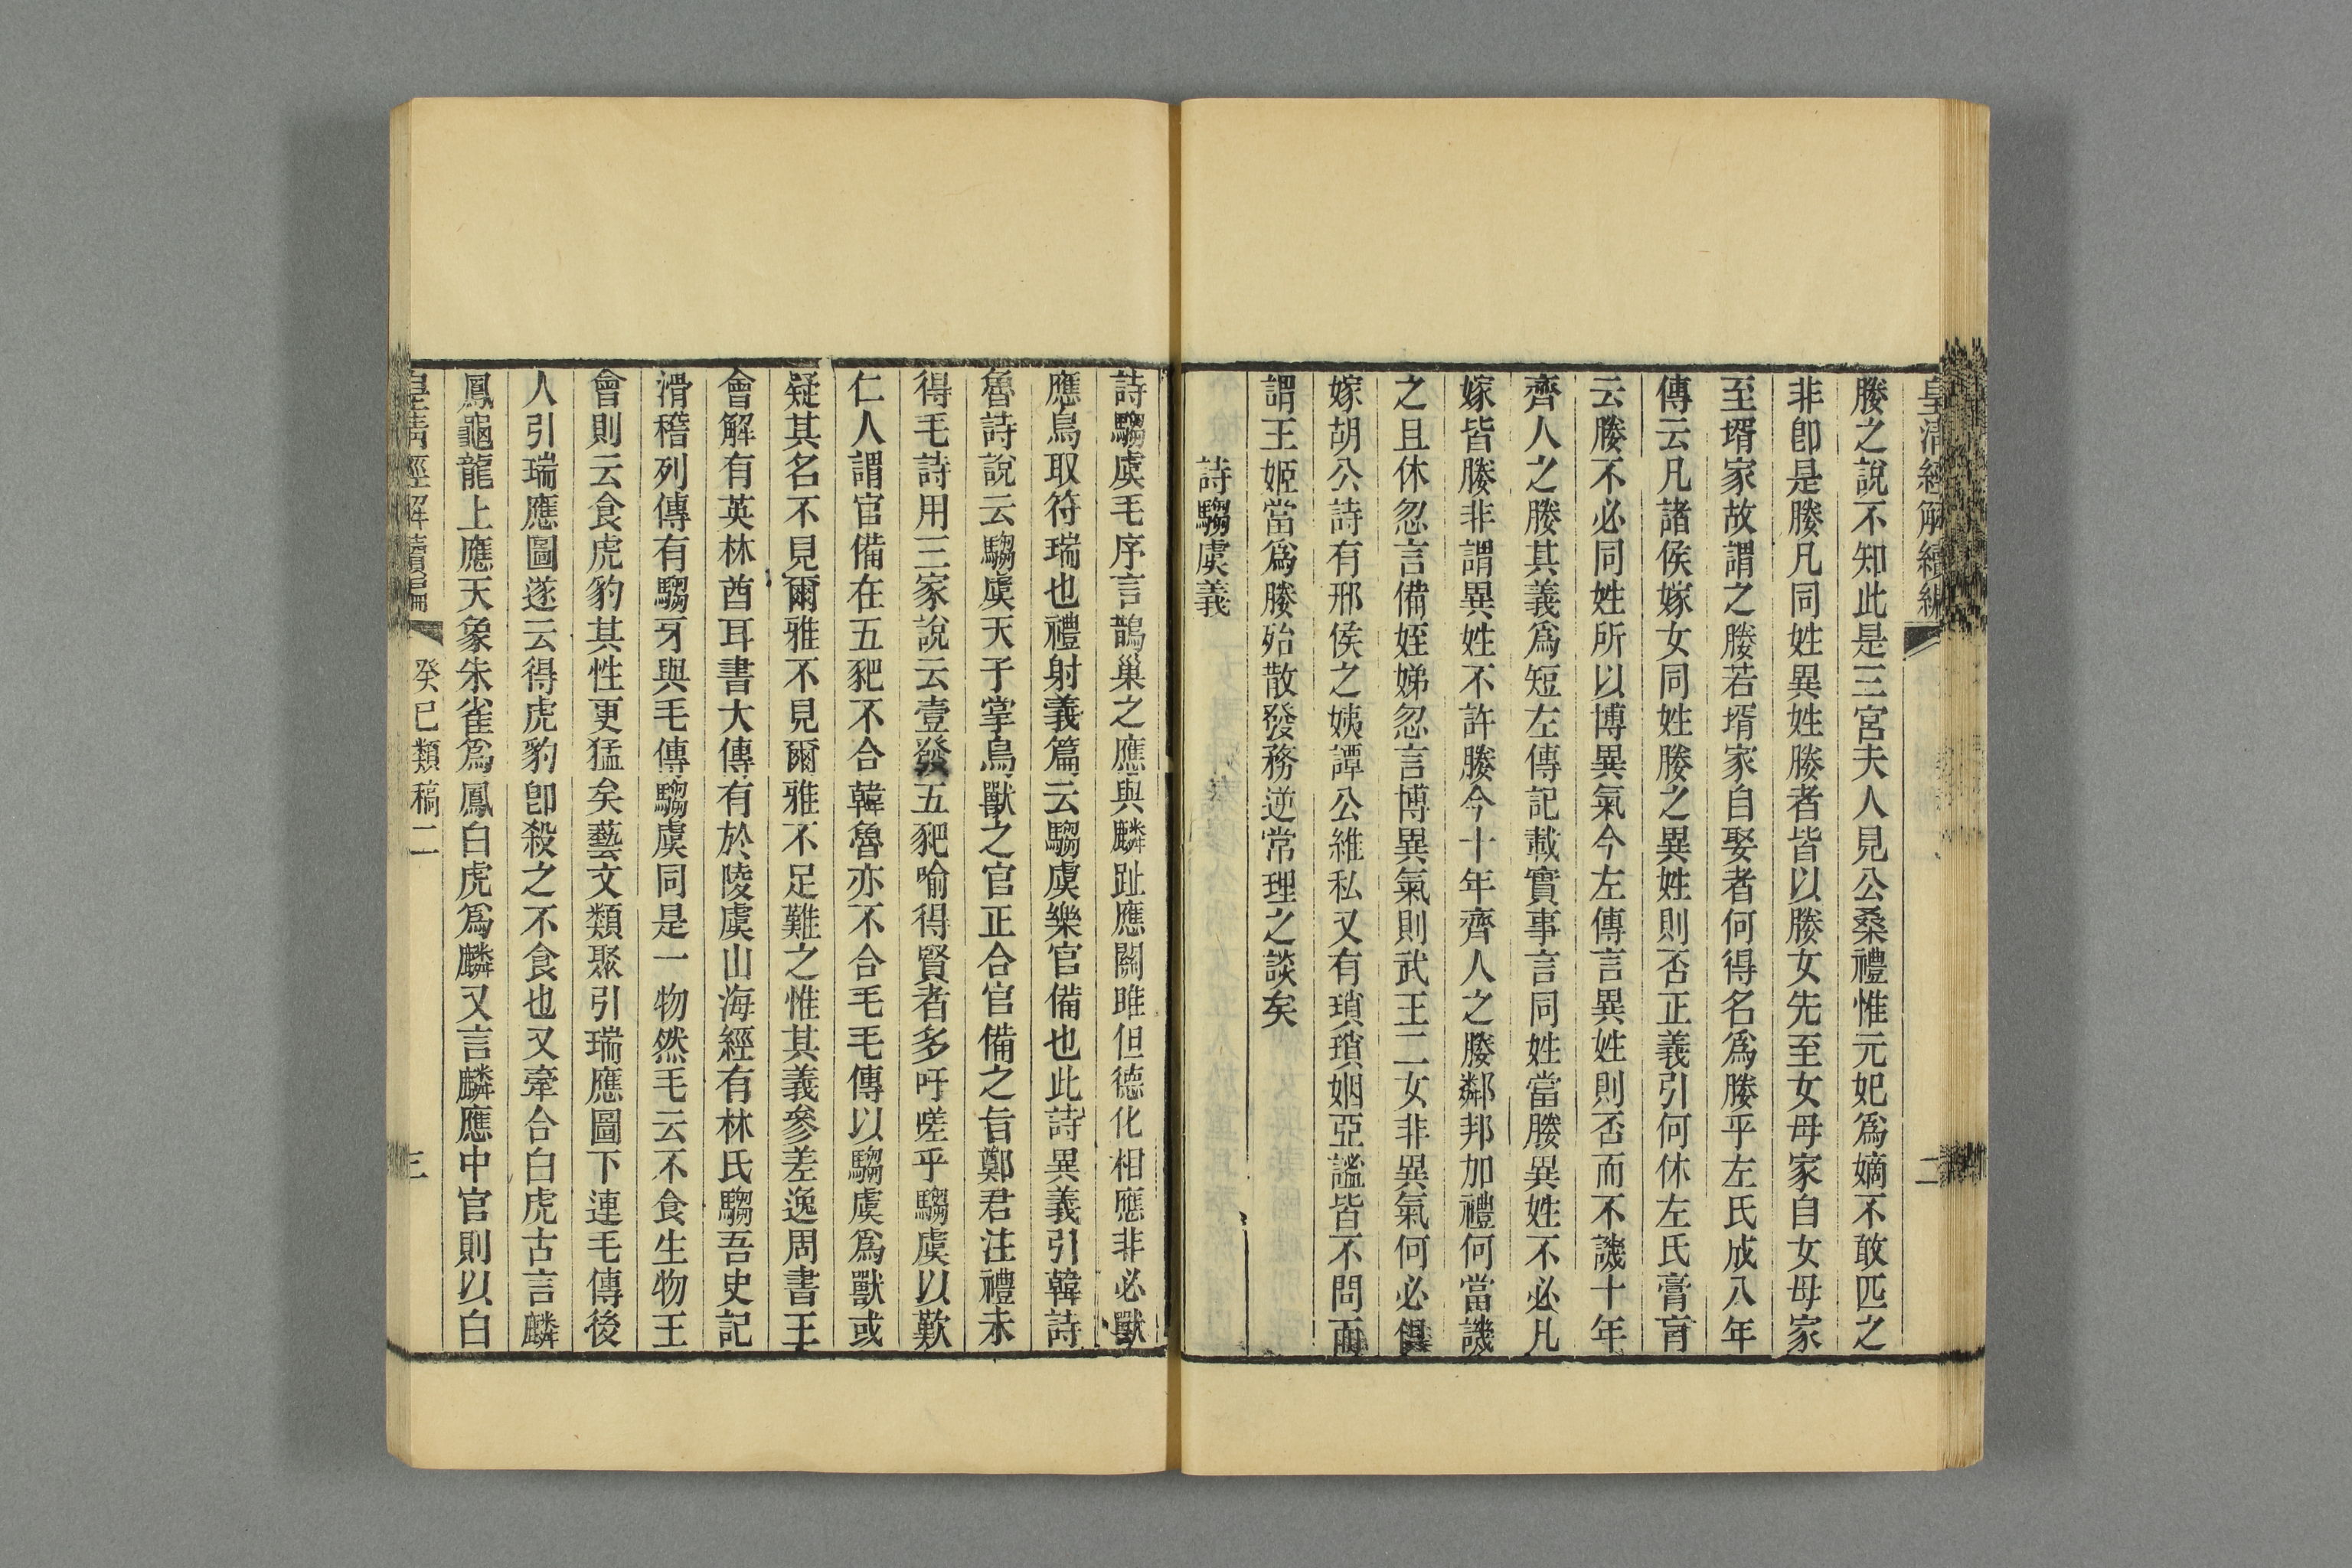 皇清經解續編
二
媵之說不知此是三宮夫人見公桑禮惟元妃爲嫡不敢匹之
非卽是媵凡同姓異姓媵者皆以媵女先至女母家自女母家
至壻家故謂之媵若壻家自娶者何得名爲媵乎左氏成八年
傳云凡諸侯嫁女同姓媵之異姓則否正義引何休左氏膏肓
云媵不必同姓所以博異氣今左傳言異姓則否而不譏十年
齊人之媵其義爲短左傳記載實事言同姓當媵異姓不必凡
嫁皆媵非謂異姓不許媵今十年齊人之媵鄰邦加禮何當譏
之且休忽言備姪娣忽言博異氣則武王二女非異氣何必俱
嫁胡公詩有邢侯之姨譚公維私又有瑣瑣姻亞謐皆不問而
謂王姬當爲媵殆散發務逆常理之談矣
詩騶虞義
詩騶虞毛序言鵲巢之應與麟趾應關雎但德化相應非必獸
應鳥取符瑞也禮射義篇云騶虞樂官備也此詩異義引韓詩
魯詩說云騶虞天子掌鳥獸之官正合官備之旨鄭君注禮未
得毛詩用三家說云壹發五豝喻得賢者多吁嗟乎騶虞以歎
仁人謂官備在五豝不合韓魯亦不合毛毛傳以騶虞爲獸或
疑其名不見爾雅不見爾雅不足難之惟其義參差逸周書王
會解有英林酋耳書大傳有於陵虞山海經有林氏騶吾史記
滑稽列傳有騶牙與毛傳騶虞同是一物然毛云不食生物王
會則云食虎豹其性更猛矣藝文類聚引瑞應圖下連毛傳後
人引瑞應圖遂云得虎豹卽殺之不食也又牽合白虎古言麟
鳳龜龍上應天象朱雀爲鳳白虎爲麟又言麟應中官則以白
皇清經解續編
癸巳類稿二
三